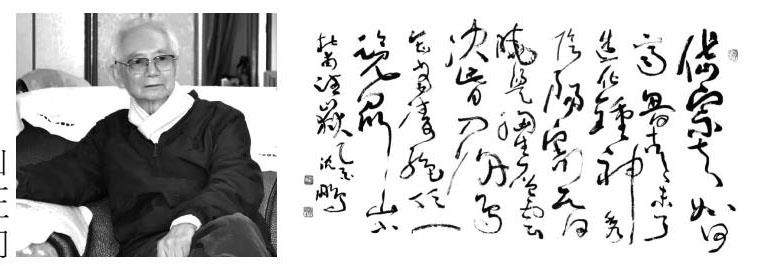 岱宗夫如何
齊魯青未了
造化鍾神秀
陰陽割昏
曉盪胸生曾雲
決眥入歸鳥
會當凌絕頂一
覽眾山小
杜甫望嶽 乙酉 沈鵬